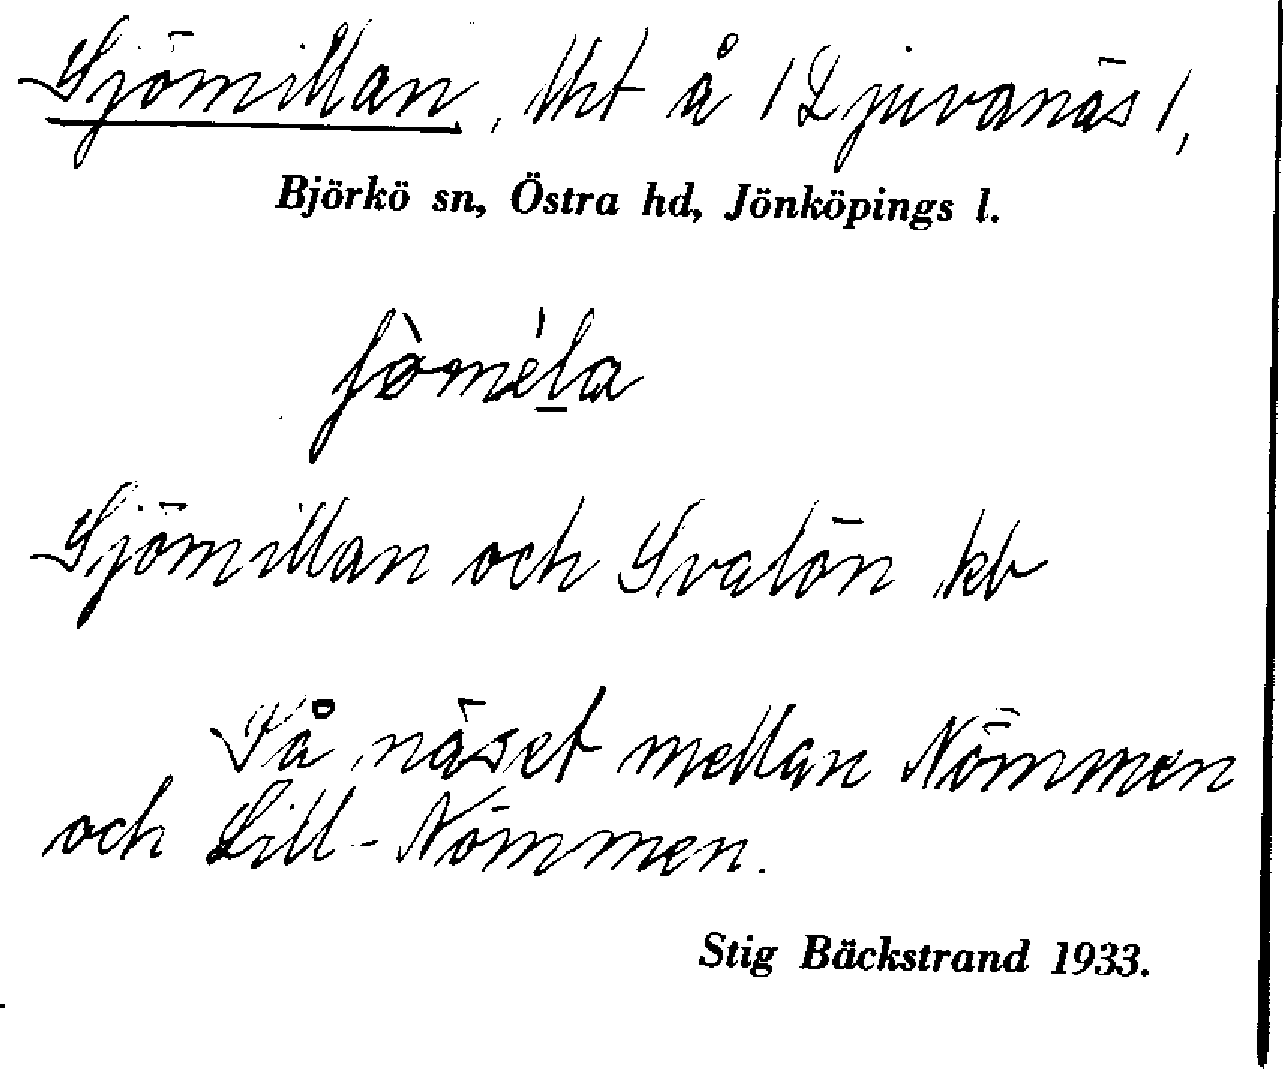 Sjömillan, lht å /Ljuvanäs/,
Björkö sn, Östra hd, Jönköpings l.
Sjömillan och Svalön kb
På näset mellan Nömmen
och Lill-Nömmen.
Stig Bäckstrand 1933.